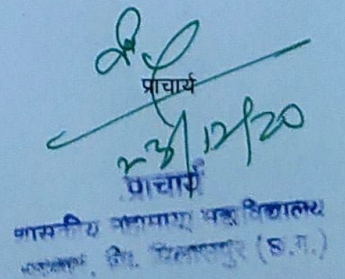 प्राचार्य
23/12/20
प्राचार्य
शासकीय महामाया महाविद्यालय
जि. बिलासपुर (छ.ग.)